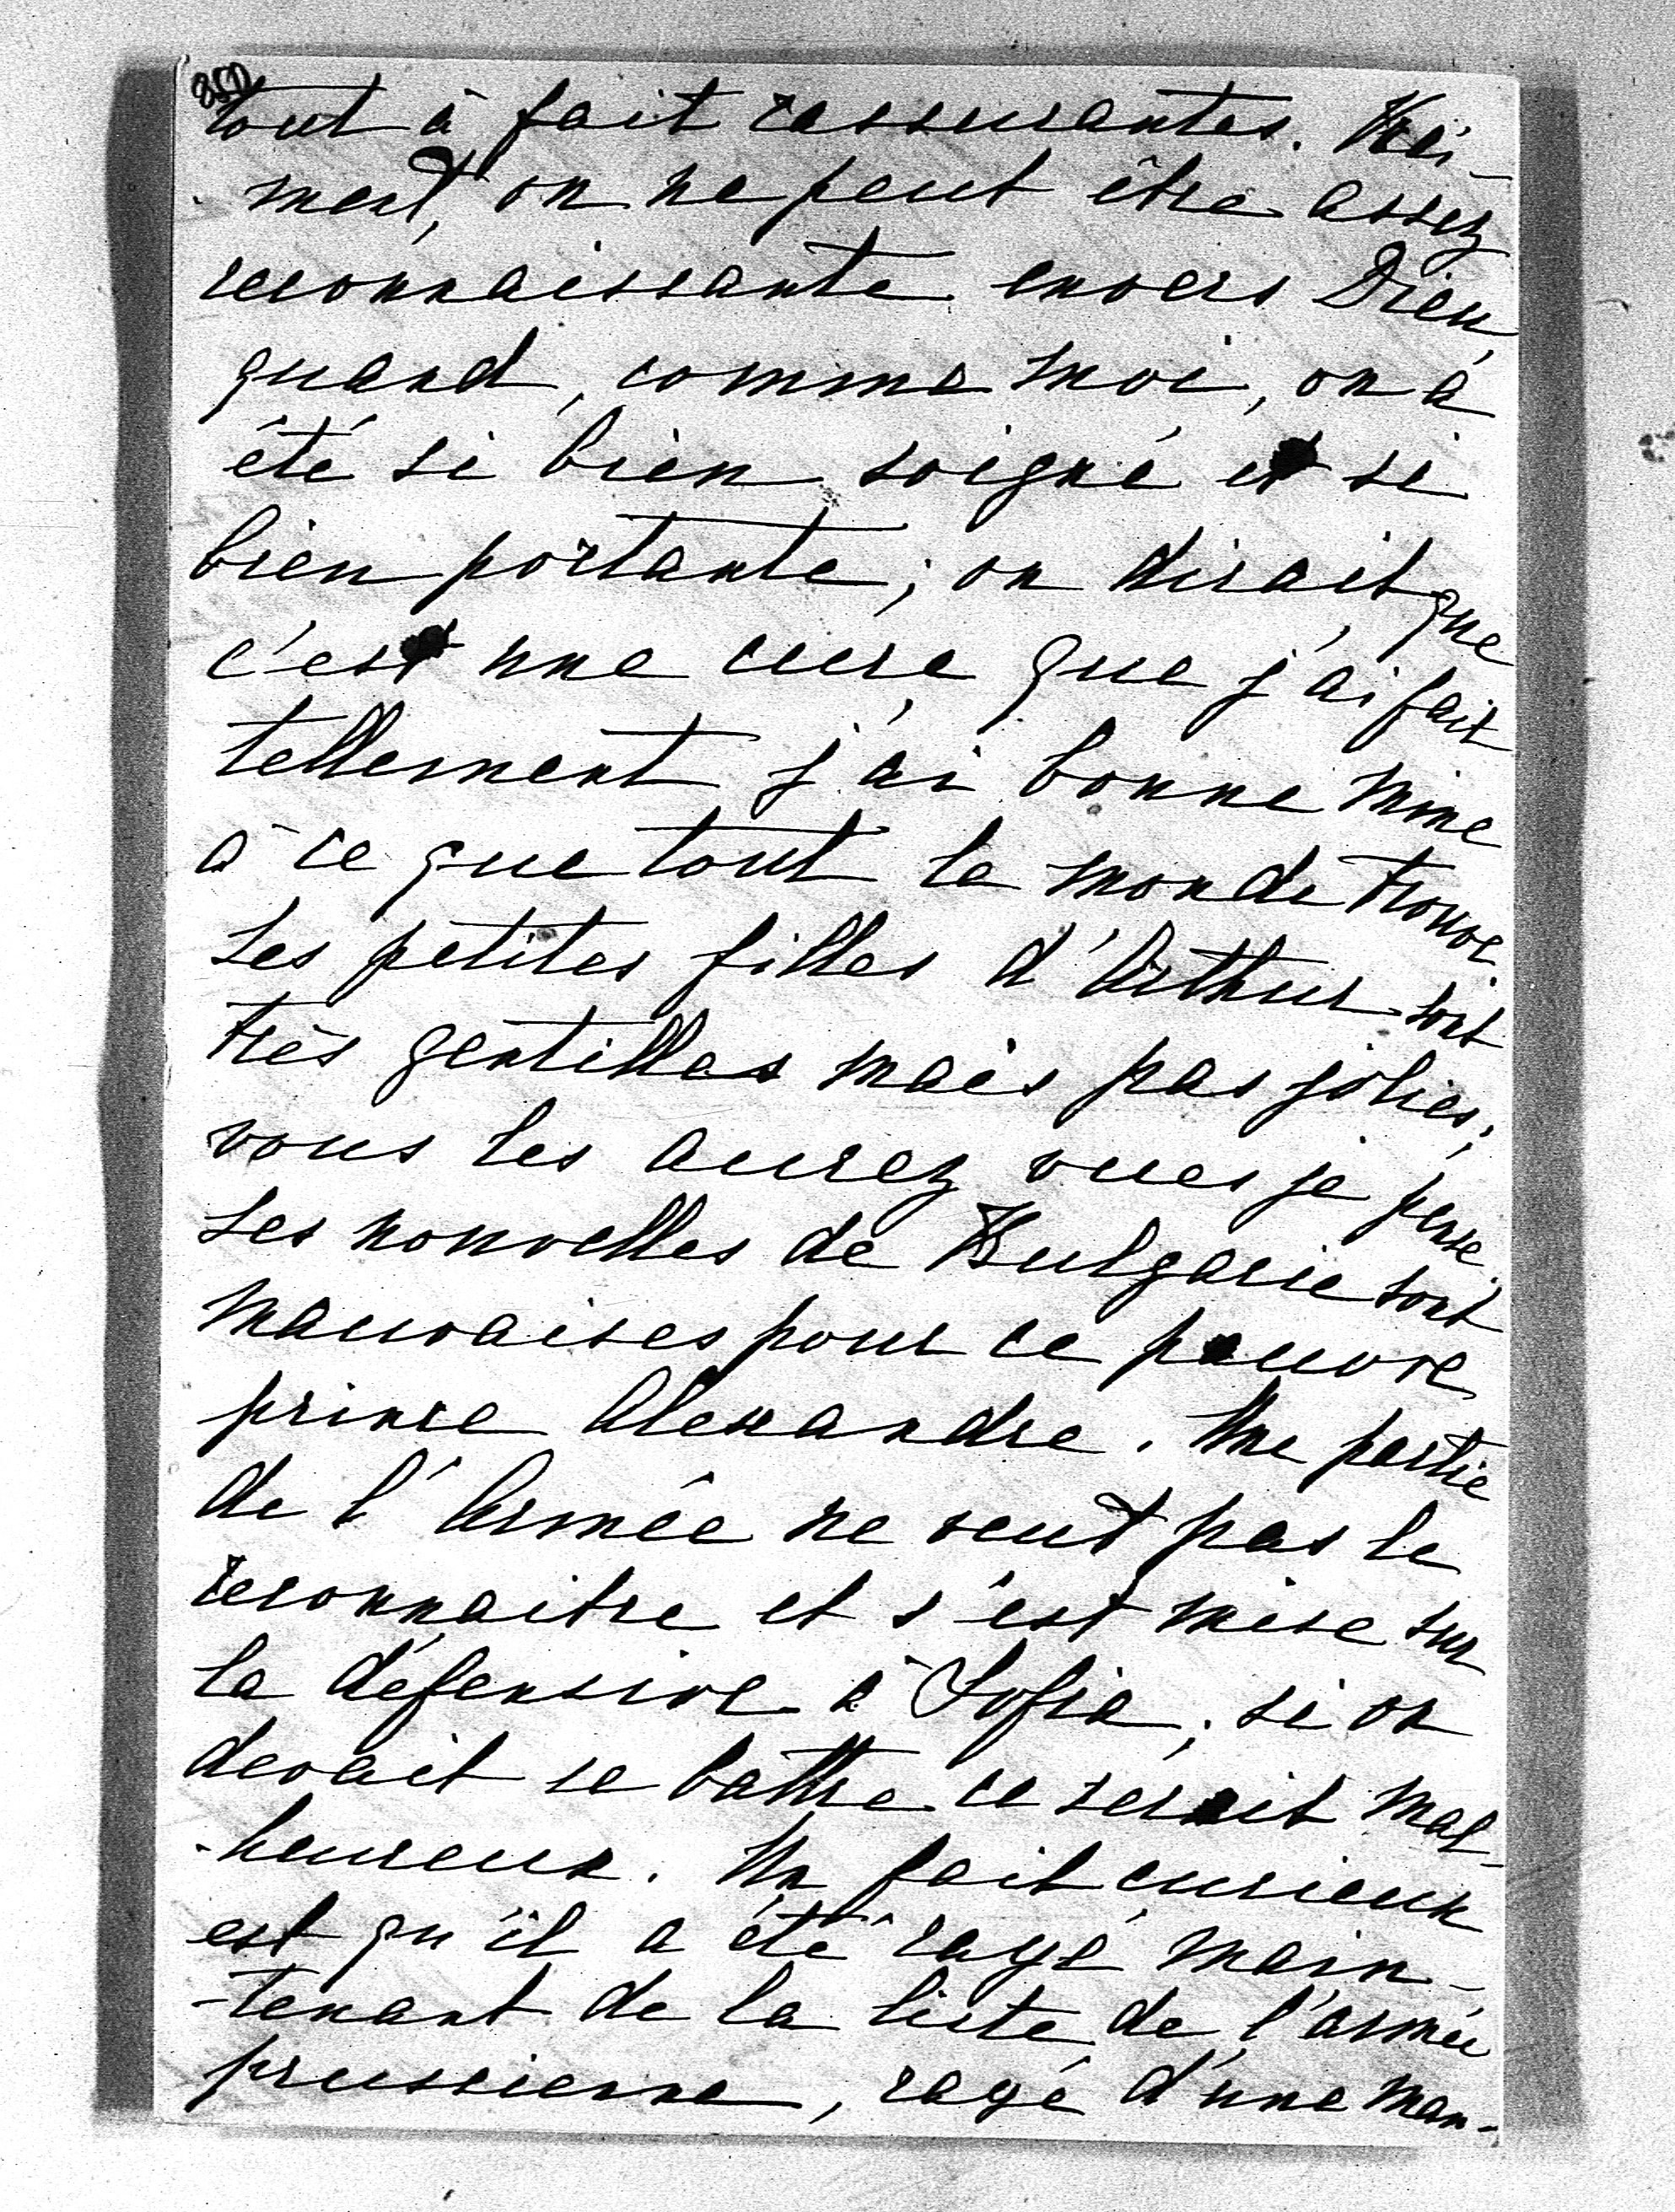 350
tout à fait rassurantes. Vrai-
ment, on ne peut être assez
reconnaissante envers Dieu,
quand, comme moi, on a
été si bien soigné et si
bien portante; on dirait que
c'est une cure que j'ai fait
tellement j'ai bonne mine
à ce que tout le monde trouve.
Les petites filles d'Arthur sont
très gentilles mais pas jolies;
vous les aurez vues je pense.
Les nouvelles de Bulgarie sont
mauvaises pour ce pauvre
prince Alexandre. Une partie
de l'Armée ne veut pas le
reconnaitre et s'est mise sur
la défensive à Sofia; si on
devait se battre ce serait mal-
-heureux. Un fait curieux
est qu'il a été rayé main-
-tenant de la liste de l'armée
prussienne, rayé d'une man-